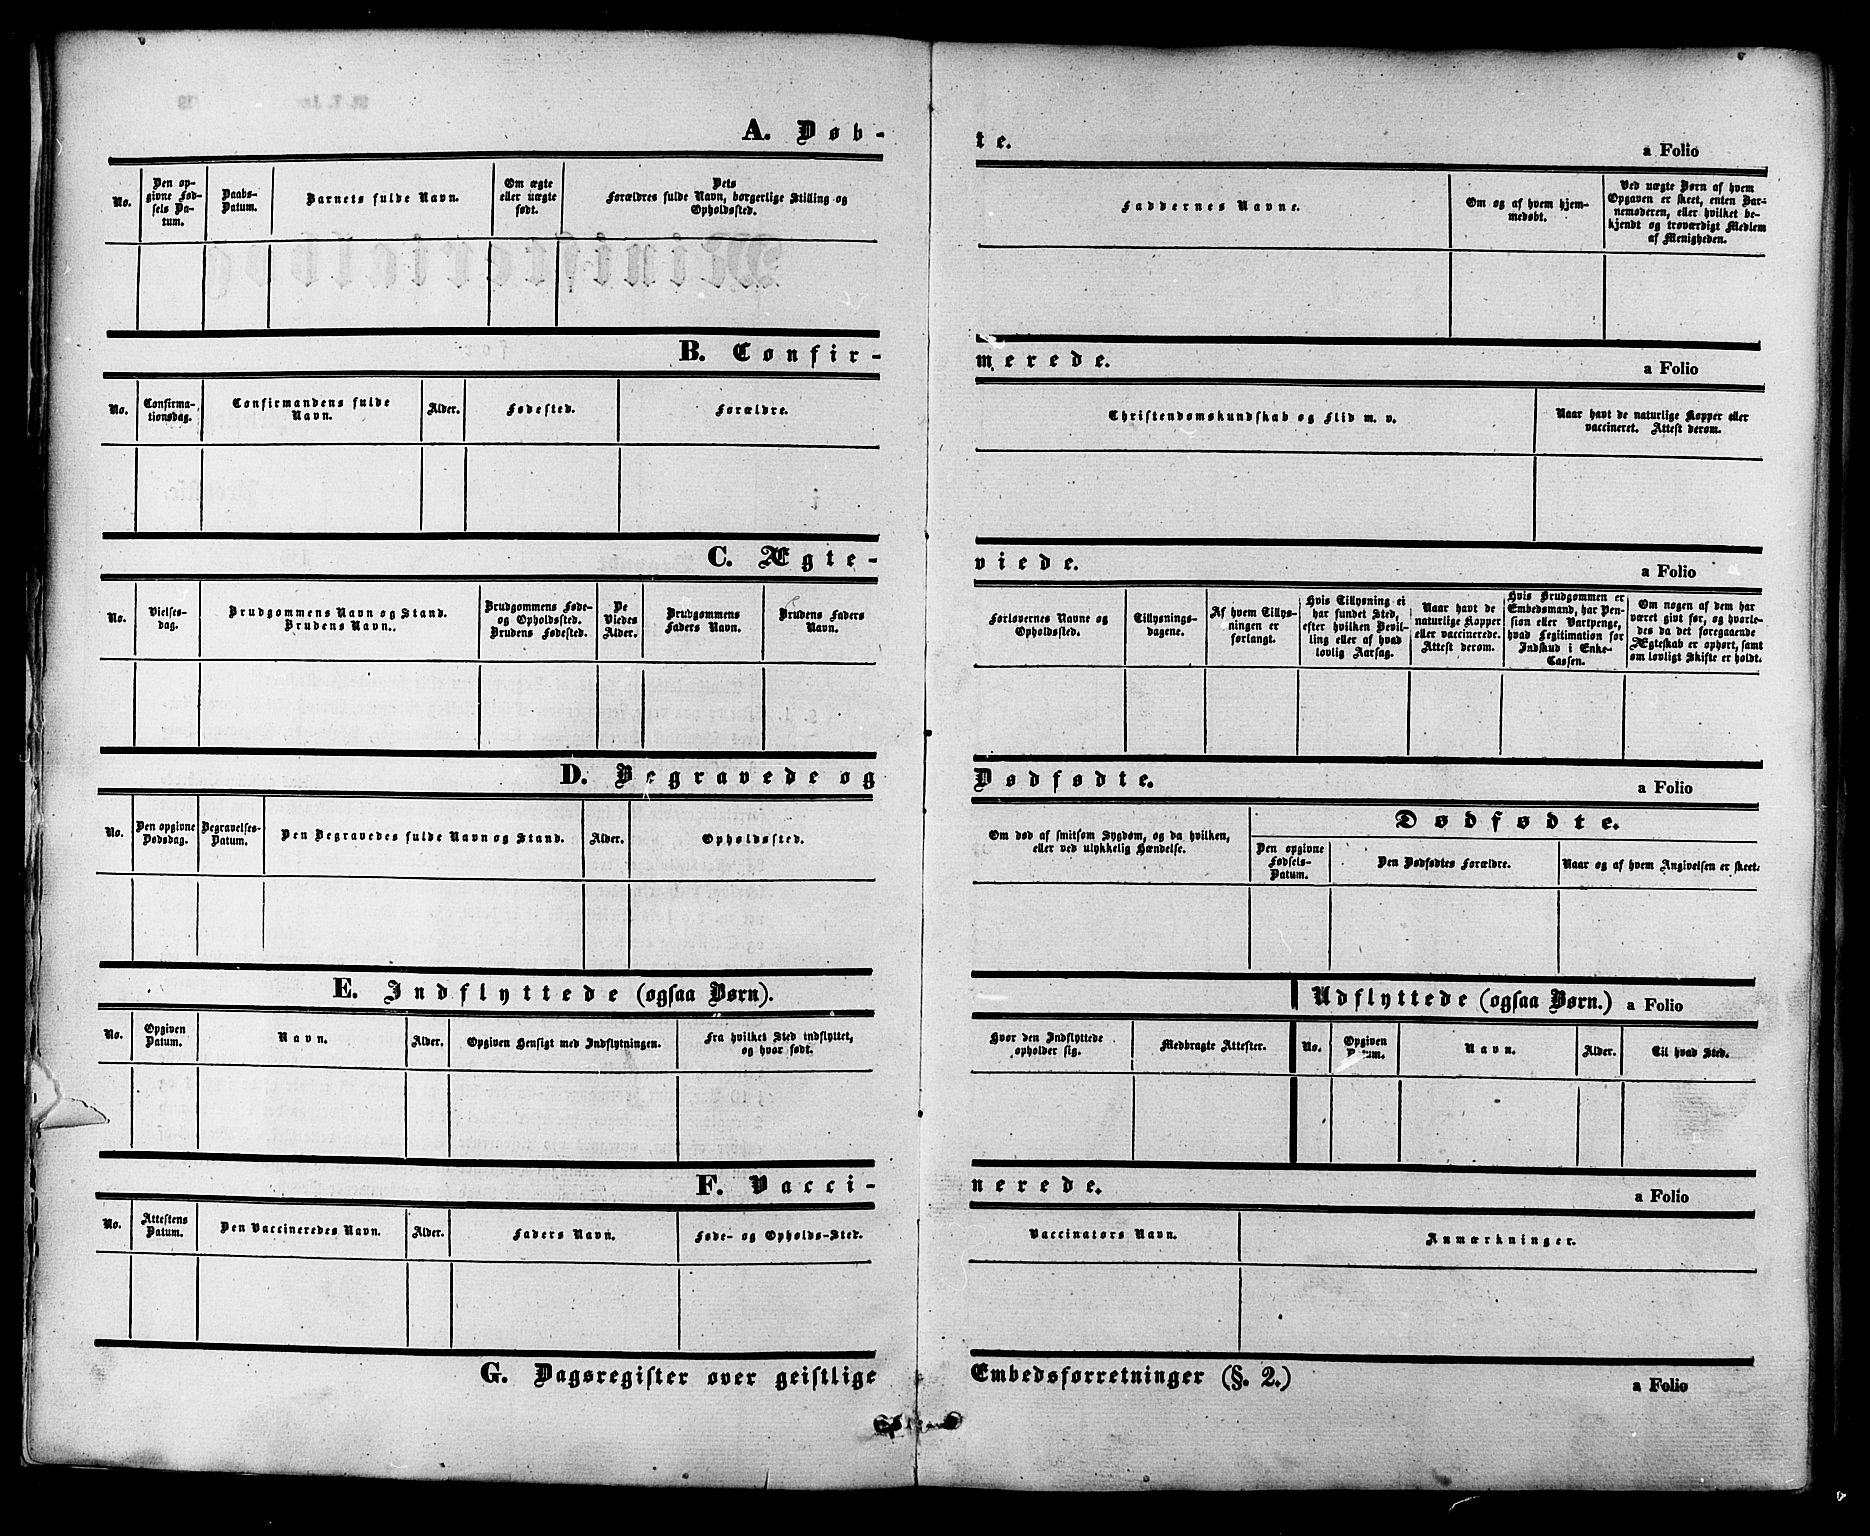 A. Døb-
te.
a Folio
No.
Den op-
givne Fød-
sels Da-
tum.
Daabs-
Datum.
Barnets fulde Navn.
Om ægte
eller uægte
født.
Dets
Forældres fulde Navn, borgerlige Stilling og
Opholdssted.
Faddernes Navne.
Om og af hvem hjem-
medøbt.
Ved uægte Børn af hvem
Opgaven er skeet, enten Bar-
nemoderen, eller hvilket be-
kjendt og troværdigt Medlem
af Menigheden.
B. Confir-
merede.
a Folio
No.
Confirma-
tionsdag.
Confirmandens fulde
Navn.
Alder.
Fødested.
Forældre.
Christendomskundskab og Flid m. v.
Naar havt de naturlige Kopper eller
vaccineret. Attest derom.
C. Ægte-
viede.
a Folio
No.
Vielses-
dag.
Brudgommens Navn og Stand.
Brudens Navn.
Brudgommens Føde-
og Opholdssted.
Brudens Fødested.
De
Viedes
Alder.
Brudgommens
Faders Navn.
Brudens Faders
Navn.
Forlovernes Navne og
Opholdssted.
Tillysnings-
dagene.
Af hvem Tillys-
ningen er
forlangt.
Hvis Tillysning ei
har fundet Sted,
efter hvilken Bevil-
ling eller af hvad
lovlig Aarsag.
Naar havt de
naturlige Kopper
eller vaccinerede.
Attest derom.
Hvis Brudgommen er
Embedsmand, har Pen-
sion eller Vartpenge,
hvad Legitimation for
Indskud i Enke-
Cassen.
Om nogen af dem har
været givt før, og hvorle-
des da det foregaaende
Ægteskab er ophørt, samt
om lovligt Skifte er holdt.
D. Begravede og
Dødfødte.
a Folio
No.
Den opgivne
Dødsdag.
Begravelses-
Datum.
Den Begravedes fulde Navn og Stand.
Alder.
Opholdssted.
Om død af smitsom Sygdom, og da hvilken,
eller ved ulykkelig Hændelse.
Dødfødte.
Den opgivne
Fødsels-
Datum.
Den Dødfødtes Forældre.
Naar og af hvem Angivelsen er skeet.
E. Indflyttede (ogsaa Børn).
Udflyttede (ogsaa Børn.) a Folio
No.
Opgiven
Datum.
Navn.
Alder.
Opgiven Hensigt med Indflytningen.
Fra hvilket Sted indflyttet,
og hvor født.
Hvor den Indflyttede
opholder sig.
Medbragte Attester.
No.
Opgiven
Datum.
Navn.
Alder.
Til hvad Sted.
F. Vacci-
nerede.
a Folio
No.
Attestens
Datum.
Den Vaccineredes Navn.
Alder.
Faders Navn.
Føde- og Opholds-Sted.
Vaccinators Navn.
Anmærkninger.
G. Dagsregister over geistlige
Embedsforretninger (§. 2.)
a Folio